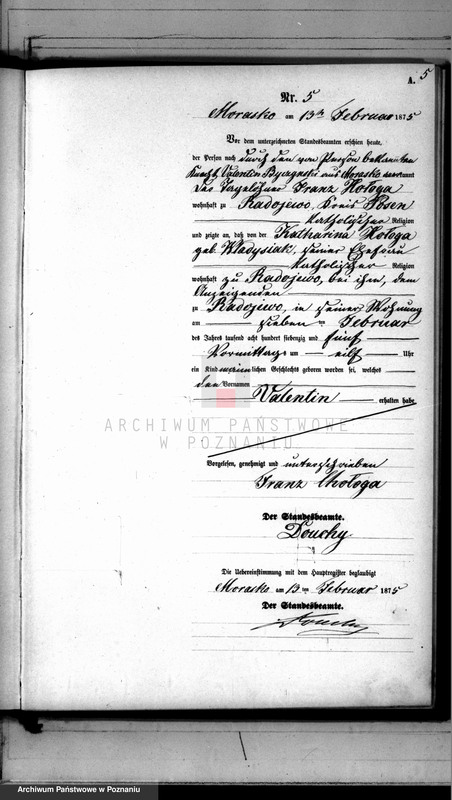 A. 5
Nr. 5
Morasko am 13ten Februar 1875
Vor dem unterzeichneten Standesbeamten erschien heute,
der Person nach durch den von Person bekannten
Knecht Valentin aus Morasko anerkannt
der Tagelöhner Franz Hologa
wohnhaft zu Radojewo, Kreis Posen
katholischer Religion
und zeigte an, daß von der Katharina Hologa
geb. Wladysiak, seiner Ehefrau
katholischer Religion
wohnhaft zu Radojewo, bei ihm, dem
Anzeigenden
zu Radojewo, in seiner Wohnung
am sieben ten Februar
des Jahres tausend acht hundert siebenzig und fünf
Vormittags um eilf Uhr
ein Kind männlichen Geschlechts geboren worden sei, welches
den Vornamen
Valentin erhalten habe
ARCHIWUM PAŃSTWOWE
W POZNANIU
Vorgelesen, genehmigt und unterschrieben
Franz Chologa
Der Standesbeamte.
Douchy
Die Uebereinstimmung mit dem Hauptregister beglaubigt
Morasko am 13 ten Februar 1875
Der Standesbeamte.
Douchy
Archiwum Państwowe w Poznaniu